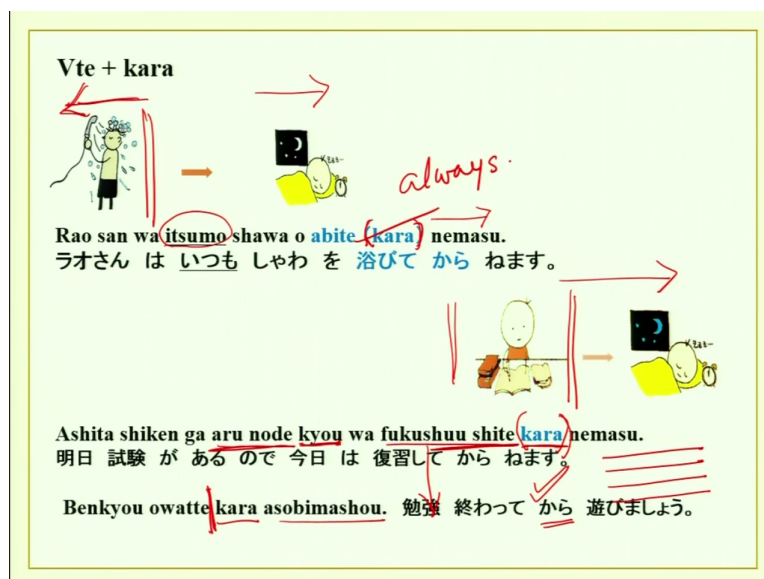 Vte + kara
always.
Rao san wa itsumo shawa o abite (kara) nemasu.
ラオさん は いつも しゃわ を 浴びて から ねます。
Ashita shiken ga aru node kyou wa fukushuu shite (kara) nemasu.
明日 試験 が ある ので 今日 は 復習して から ねます。
Benkyou owatte kara asobimashou. 勉強 終わって から 遊びましょう。